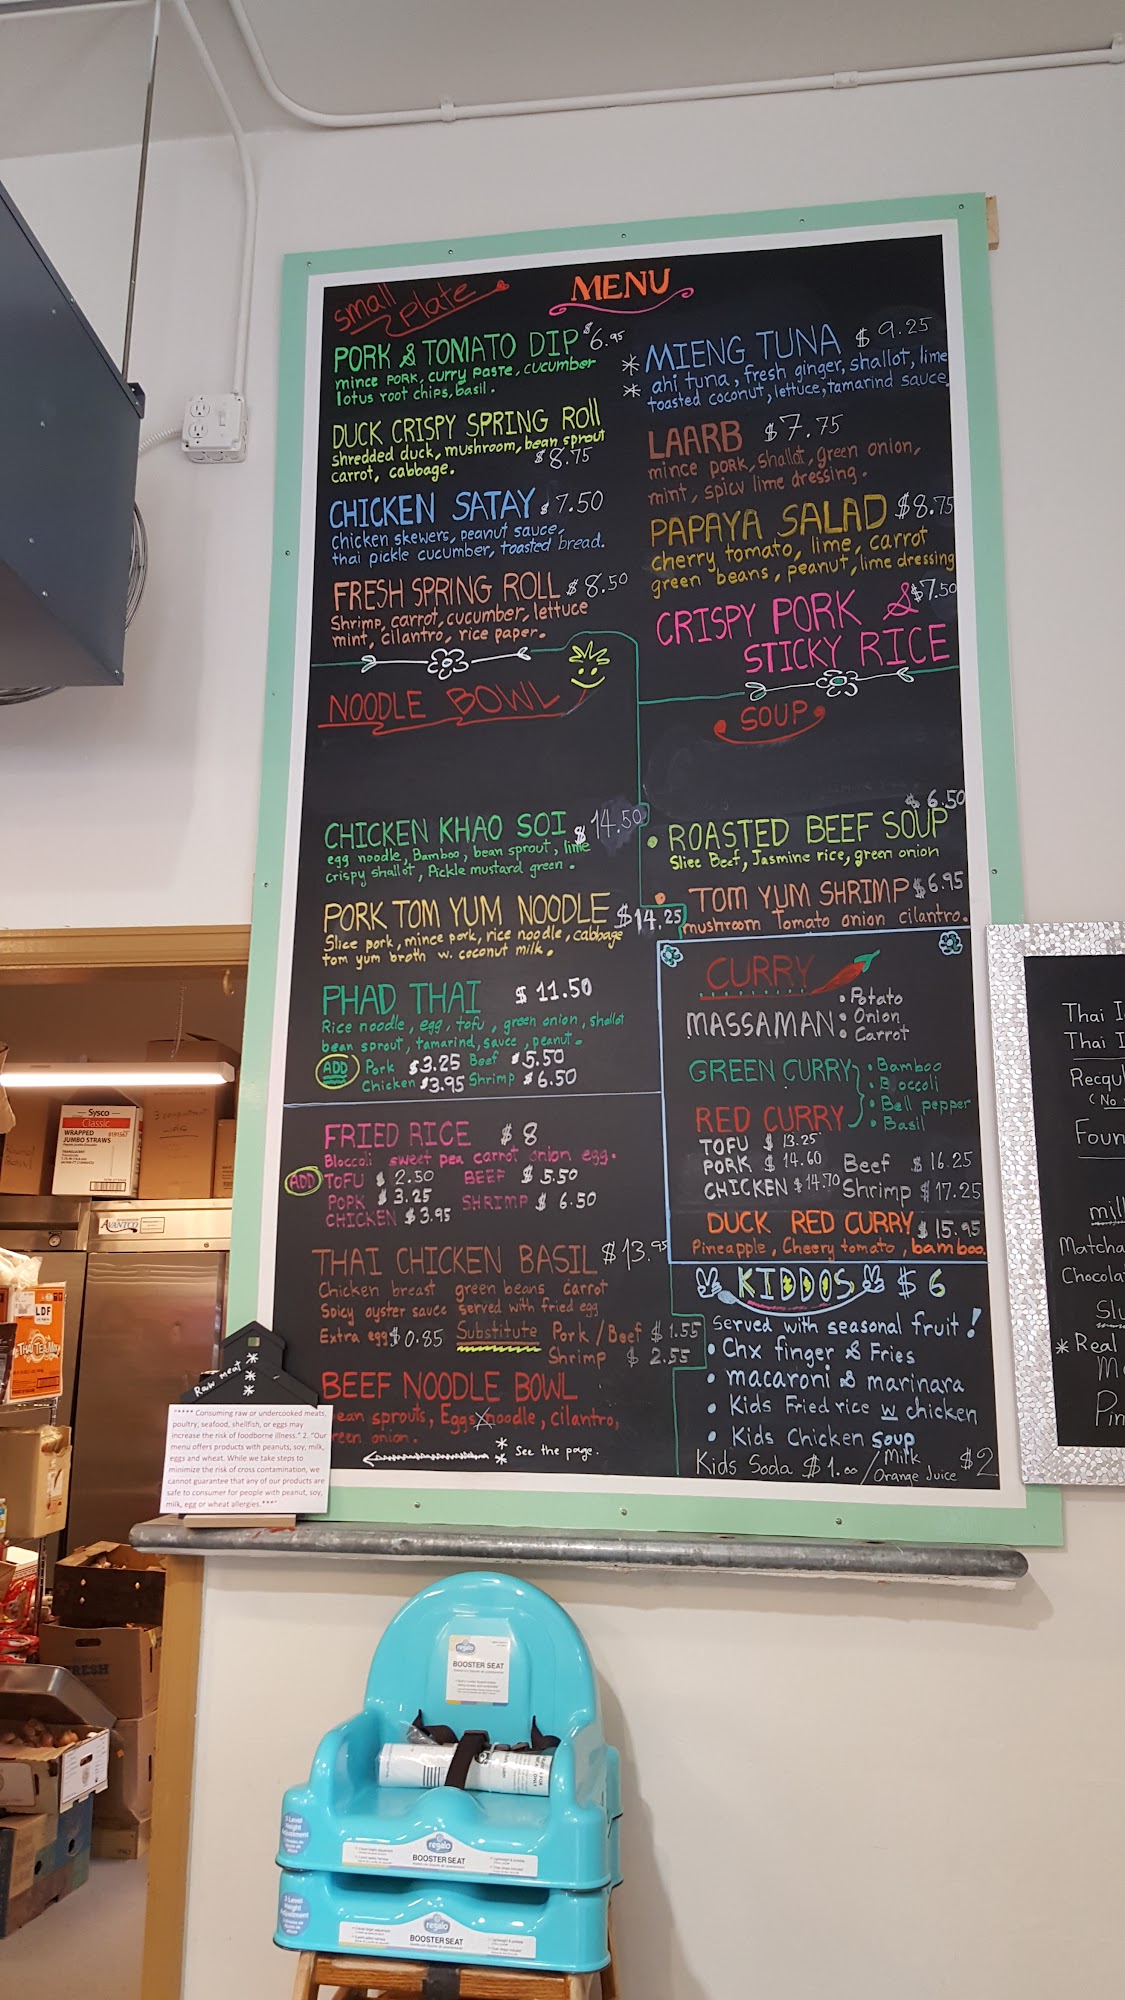 MENU
small plate
PORK & TOMATO DIP $6.95
mince pork, curry paste, cucumber
lotus root chips, basil.
DUCK CRISPY SPRING Roll
shredded duck, mushroom, bean sprout
carrot, cabbage. $8.75
CHICKEN SATAY $7.50
Chicken skewers, peanut sauce,
thai pickle cucumber, toasted bread.
FRESH SPRING ROLL $8.50
Shrimp, carrot, cucumber, lettuce
mint, cilantro, rice paper.
* MIENG TUNA $9.25
* ahi tuna, fresh ginger, shallot, lime
toasted coconut, lettuce, tamarind sauce,
LAARB $7.75
mince pork, shallot, green onion,
mint, spicy lime dressing.
PAPAYA SALAD $8.75
cherry tomato, lime, carrot
green beans, peanut, lime dressing
CRISPY PORK & $7.50
STICKY RICE
NOODLE BOWL
CHICKEN KHAO SOI $14.50
egg noodle, Bamboo, bean sprout, lime
crispy shallot, Pickle mustard green.
PORK TOM YUM NOODLE $14.25
Slice pork, mince pork, rice noodle, cabbage
tom yum broth w. coconut milk.
PHAD THAI $11.50
Rice noodle, egg, tofu, green onion, shallot
bean sprout, tamarind, sauce, peanut.
ADD Pork $3.25 Beef $5.50
Chicken $3.95 Shrimp $6.50
SOUP
$6.50
• ROASTED BEEF SOUP
Slice Beef, Jasmine rice, green onion
• TOM YUM SHRIMP $6.95
mushroom Tomato onion cilantro.
CURRY
MASSAMAN • Potato
• Onion
• Carrot
GREEN CURRY • Bamboo
• Broccoli
RED CURRY • Bell pepper
• Basil
TOFU $13.25
PORK $14.60 Beef $16.25
CHICKEN $14.70 Shrimp $17.25
DUCK RED CURRY $15.95
Pineapple, Cheery tomato, bamboo.
FRIED RICE $8
Bloccoli sweet pea carrot onion egg.
ADD TOFU $2.50 BEEF $5.50
PORK $3.25 SHRIMP $6.50
CHICKEN $3.95
THAI CHICKEN BASIL $13.95
Chicken breast green beans carrot
Spicy oyster sauce served with fried egg
Extra egg $0.85 Substitute Pork/Beef $1.55
Shrimp $2.55
BEEF NOODLE BOWL
ean sprouts, Eggs noodle, cilantro,
reen onion.
* See the page.
*
KIDDOS $6
Served with seasonal fruit!
• Chx finger & Fries
• macaroni & marinara
• Kids Fried rice w chicken
• Kids Chicken soup
Kids Soda $1.00 / Milk
Orange Juice $2
Raw meat ***
"**** Consuming raw or undercooked meats,
poultry, seafood, shellfish, or eggs may
increase the risk of foodborne illness." 2. "Our
menu offers products with peanuts, soy, milk,
eggs and wheat. While we take steps to
minimize the risk of cross contamination, we
cannot guarantee that any of our products are
safe to consume for people with peanut, soy,
milk, egg or wheat allergies.***"
Thai I
Thai I
(No
Foun
mil
Matcha
Chocola
* Real
Sysco
Classic
WRAPPED
JUMBO STRAWS
AVANTCO
LDF
THAI TEA MIX
regalo
BOOSTER SEAT
3 Level
Height
Adjustment
regalo
BOOSTER SEAT
3 Level
Height
Adjustment
regalo
BOOSTER SEAT